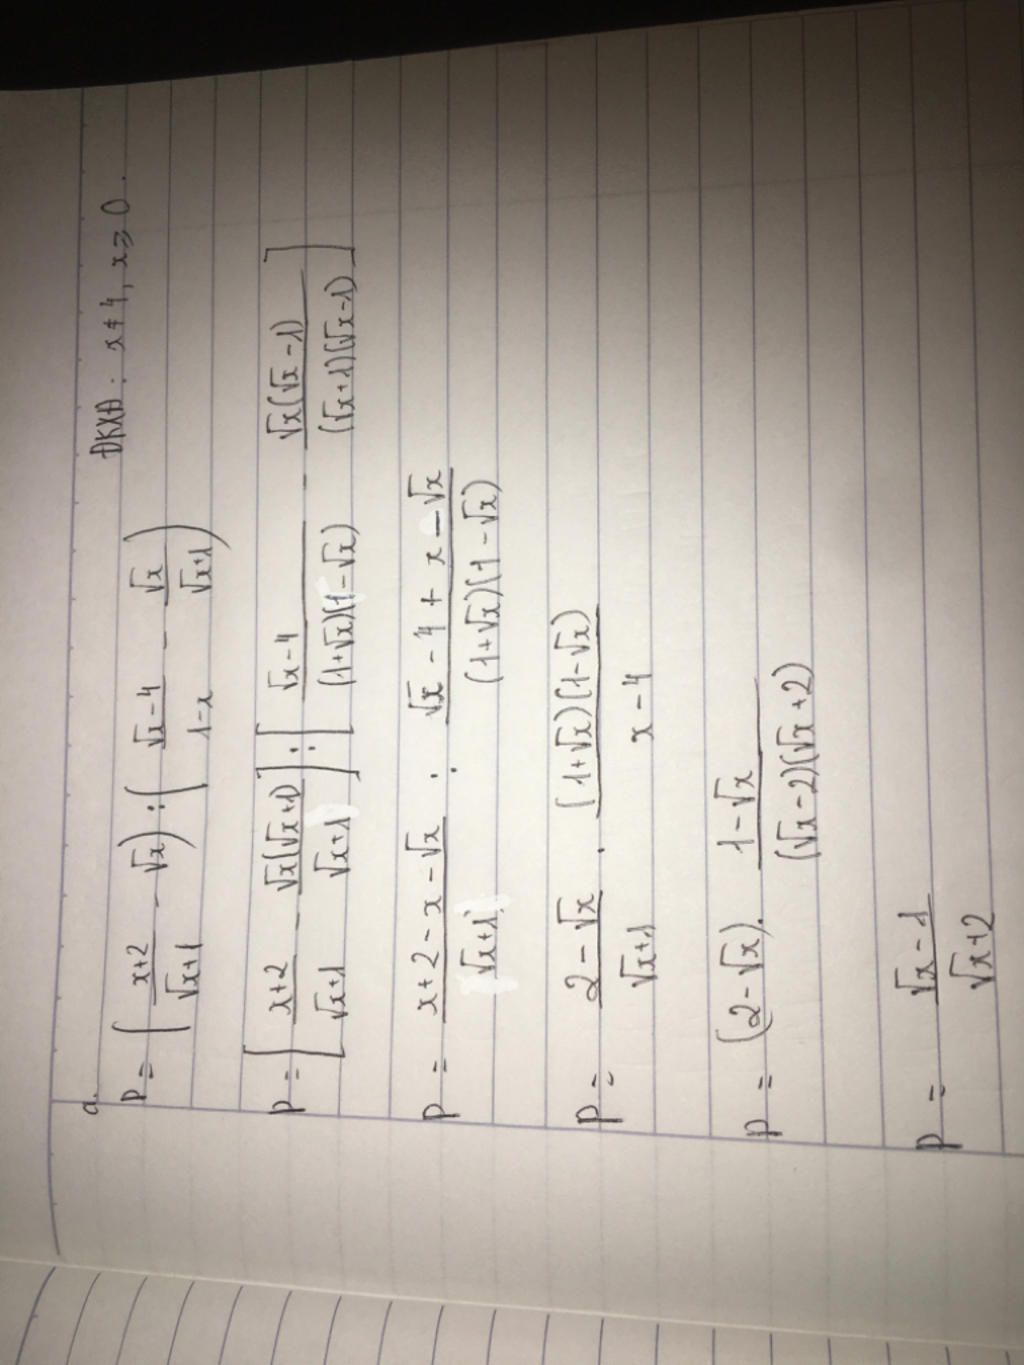 a.
P = (x+2/√x+1 - √x) : (√x-4/1-x - √x/√x+1) ĐKXĐ: x ≠ 4, x ≥ 0.
P = [x+2/√x+1 - √x(√x+1)/√x+1] : [√x-4/(1+√x)(1-√x) - √x(√x-1)/(√x+1)(√x-1)]
P = x+2-x-√x/√x+1 : √x-4+x-√x/(1+√x)(1-√x)
P = 2-√x/√x+1 . (1+√x)(1-√x)/x-4
P = (2-√x). 1-√x/(√x-2)(√x+2)
P = √x-1/√x+2